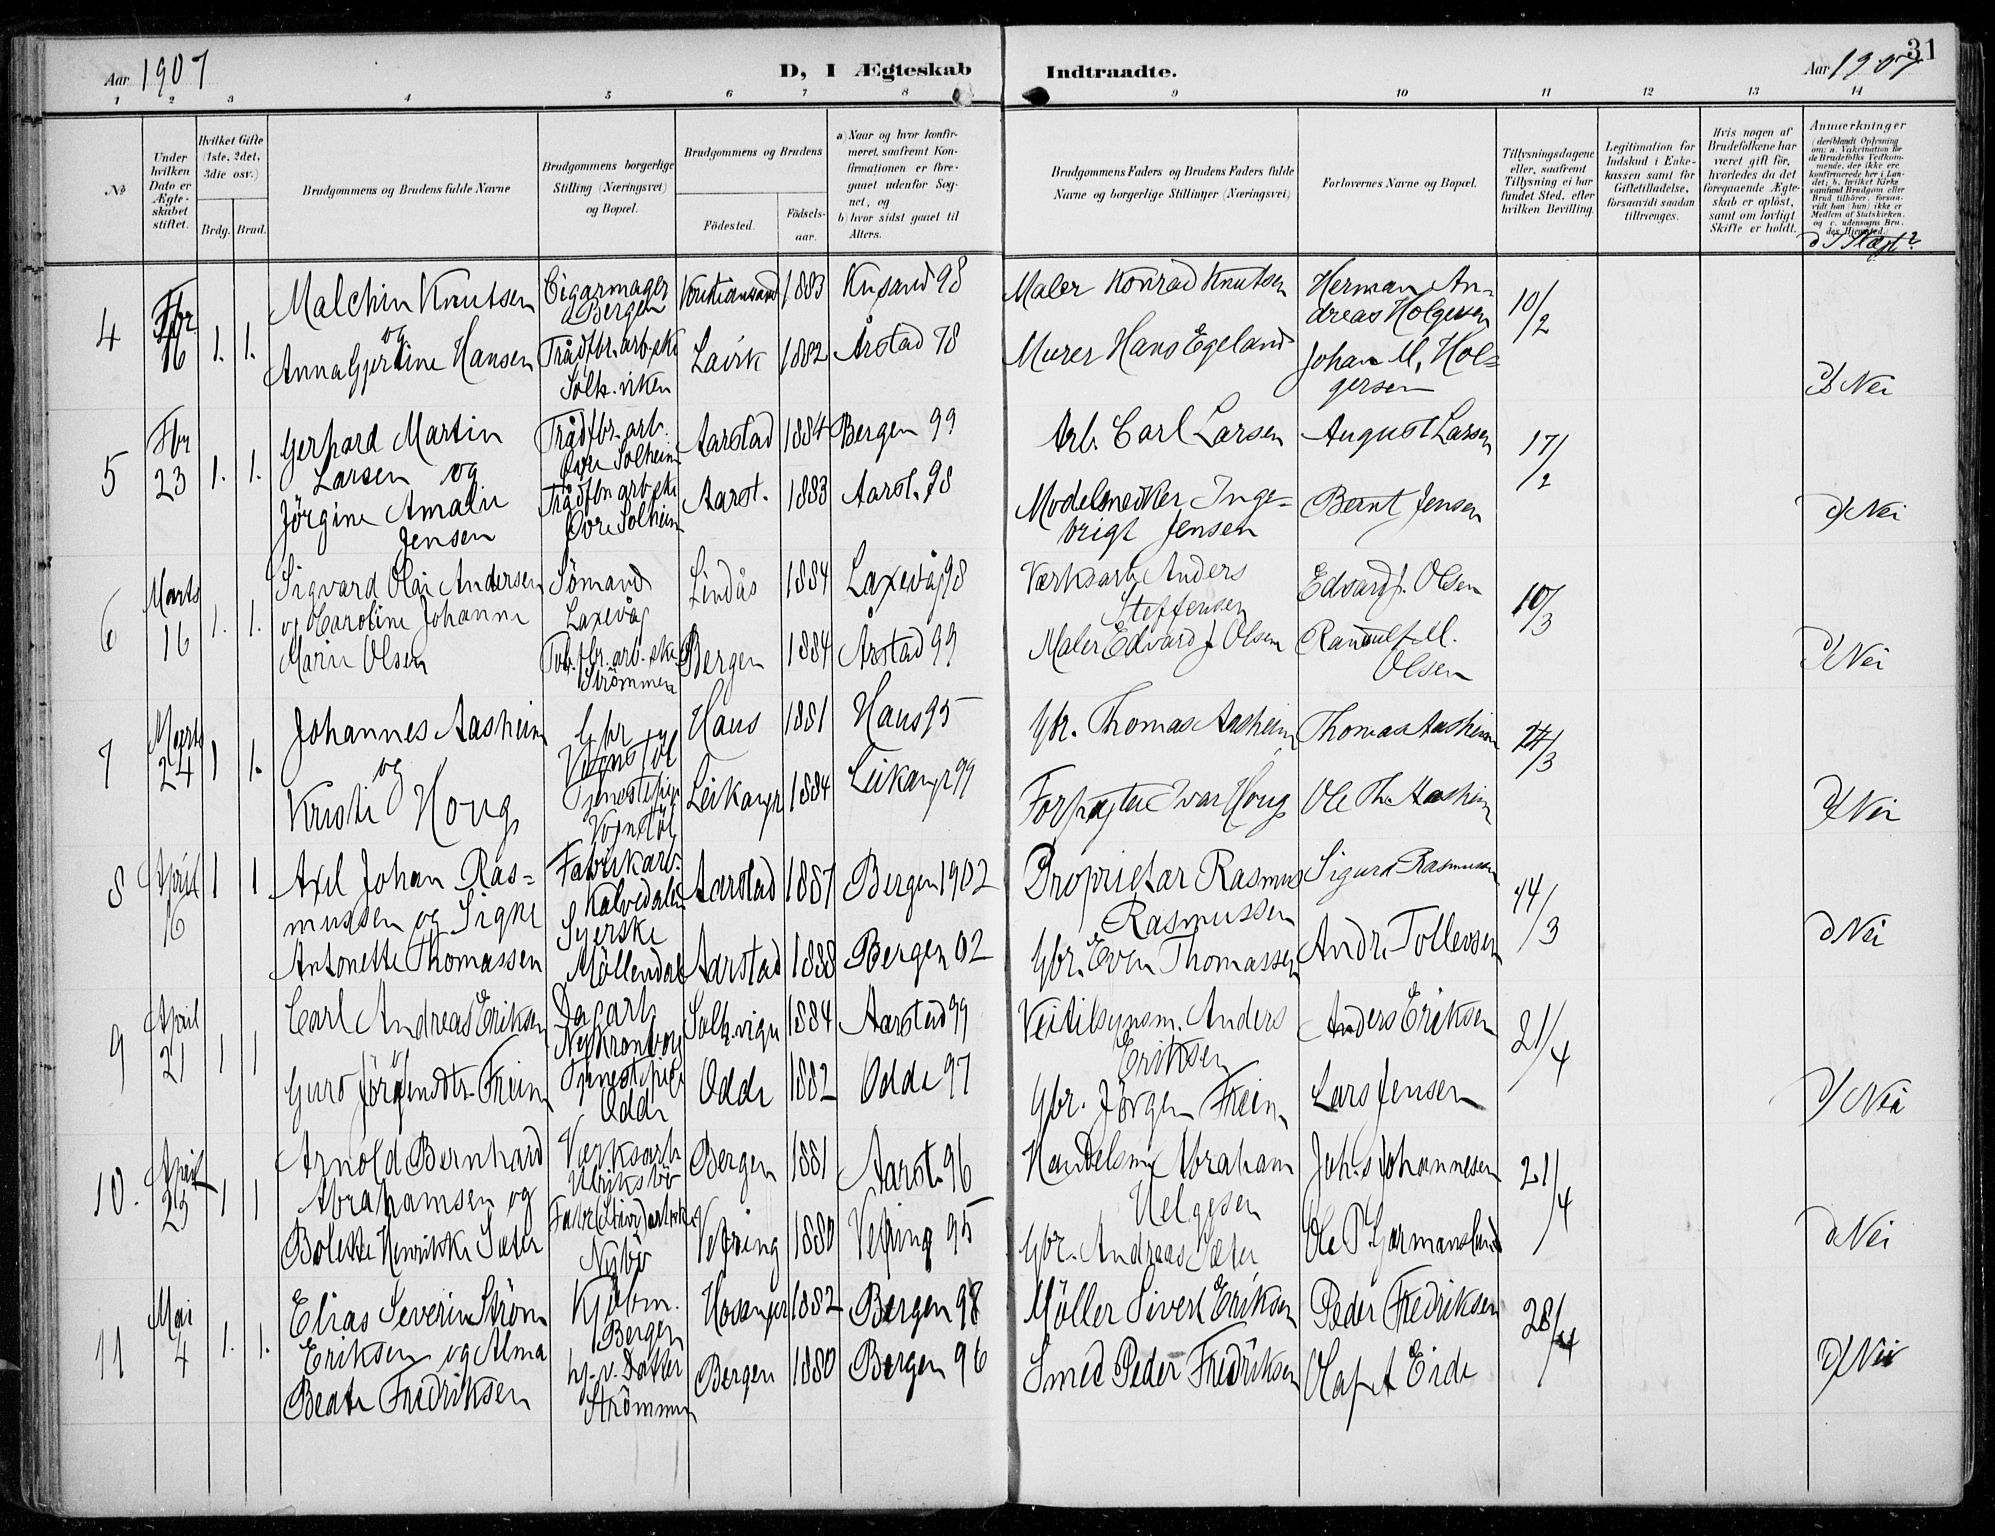 31
Aar 1907
D, I Ægteskab Indtraadte.
Aar 1907
1 2 3 4 5 6 7 8 9 10 11 12 13 14
No
Under hvilken Dato er Ægteskabet stiftet.
Hvilket Gifte (1ste, 2det, 3die osv.)
Brdg. Brud.
Brudgommens og Brudens fulde Navne
Brudgommens borgerlige Stilling (Næringsvei) og Bopæl.
Brudgommens og Brudens
Fødested.
Fødselsaar.
a) Naar og hvor konfirmeret, saafremt Konfirmationen er foregaaet udenfor Sognet, og
b) hvor sidst gaaet til Alters.
Brudgommens Faders og Brudens Faders fulde Navne og borgerlige Stillinger (Næringsvei)
Forlovernes Navne og Bopæl.
Tillysningsdagene eller, saafremt Tillysning ei har fundet Sted, efter hvilken Bevilling.
Legitimation for Indskud i Enkekassen samt for Giftetilladelse, forsaavidt saadan tiltrænges.
Hvis nogen af Brudefolkene har været gift før, hvorledes da det foregaaende Ægteskab er opløst, samt om lovligt Skifte er holdt.
Anmærkninger (deriblandt Oplysning om: a. Vakcination for de Brudefolks Vedkommende, der ikke ere konfirmerede her i Landet; b. hvilket Kirkesamfund Brudgom eller Brud tilhører, forsaavidt han (hun) ikke er Medlem af Statskirken, og c. udensogns Brudes Hjemsted.)
d) I Slægt?
4 Fbr 16 1. 1.
Malchin Knutsen Cigarmager Bergen Kristiansand 1883 Krsand 98 Maler Konrad Knutsen Herman Andreas Holgersen 10/2
og
Anna Gjertine Hansen Trådfbr. arb.ske Solh.viken Laivik 1882 Årstad 98 Murer Hans Egeland Johan M. Holgersen d) Nei
5 Fbr 23 1. 1.
Gerhard Martin Larsen og Trådfbr. arb. Øvre Solheim Aarstad 1884 Bergen 99 Arb. Carl Larsen August Larsen 17/2
Jörgine Amalie Jensen Trådfbr arb.ske Øvre Solheim Aarst. 1883 Aarst. 98 Modelsnedker Ingebrigt Jensen Bernt Jensen d) Nei
6 Marts 16 1. 1.
Sigvard Olai Andersen Sömand Laxevåg Lindås 1884 Laxevåg 98 Værksarb. Anders Steffensen Edvard J. Olsen 10/3
og Caroline Johanne Marie Olsen Tob.fbr. arb.ske Strömmen Bergen 1884 Årstad 99 Maler Edvard J Olsen Randulf M. Olsen d) Nei
7 Marts 24 1 1.
Johannes Aasheim Gbr Haus 1881 Haus 95 Gbr. Thomas Aasheim Thomas Aasheim /3
og
Kristi Houg Tjenestepige Leikanger 1884 Leikanger 99 Forpagter Ivar Houg Ole Th. Aasheim d) Nei
8 April 16 1 1
Axel Johan Rasmussen og Signe Fabrikarb. Kalvedalen Aarstad 1887 Bergen 1902 Proprietær Rasmus Rasmussen Sigurd Rasmussen 14/3
Antonette Thomassen Syerske Möllendal Aarstad 1888 Bergen 02 Gbr. Even Thomassen Andr. Tollevsen d Nei
9 April 21 1 1
Carl Andreas Eriksen Dagarb. Ny Kronborg Solh.vigen 1884 Aarstad 99 Anders Eriksen Anders Eriksen 21/4
Guro Jörgensdtr. Freim Tjenestepige Odde Odde 1882 Odde 97 Gbr. Jörgen Freim Lars Jensen d) Nei
10. April 25 1 1
Arnold Bernhard Abrahamsen og Værksarb. Ulriksbö Bergen 1881 Aarst. 96 Handelsm Abraham Helgesen Johs Johannesen 21/4
Bolette Henrikke Sæter Nybö Vefring 1880 Vefring 95 Gbr. Andreas Sæter Ole P. Gormansland d Nei
11 Mai 4 1. 1.
Elias Severin Ström Eriksen og Alma Kjöbm. Bergen Hosanger 1882 Bergen 98 Möller Sivert Eriksen Peder Fredriksen 28/4
Beate Fredriksen hj.v. Datter Strömmen Bergen 1880 Bergen 96 Smed Peder Fredriksen Olaf A Eide d) Nei